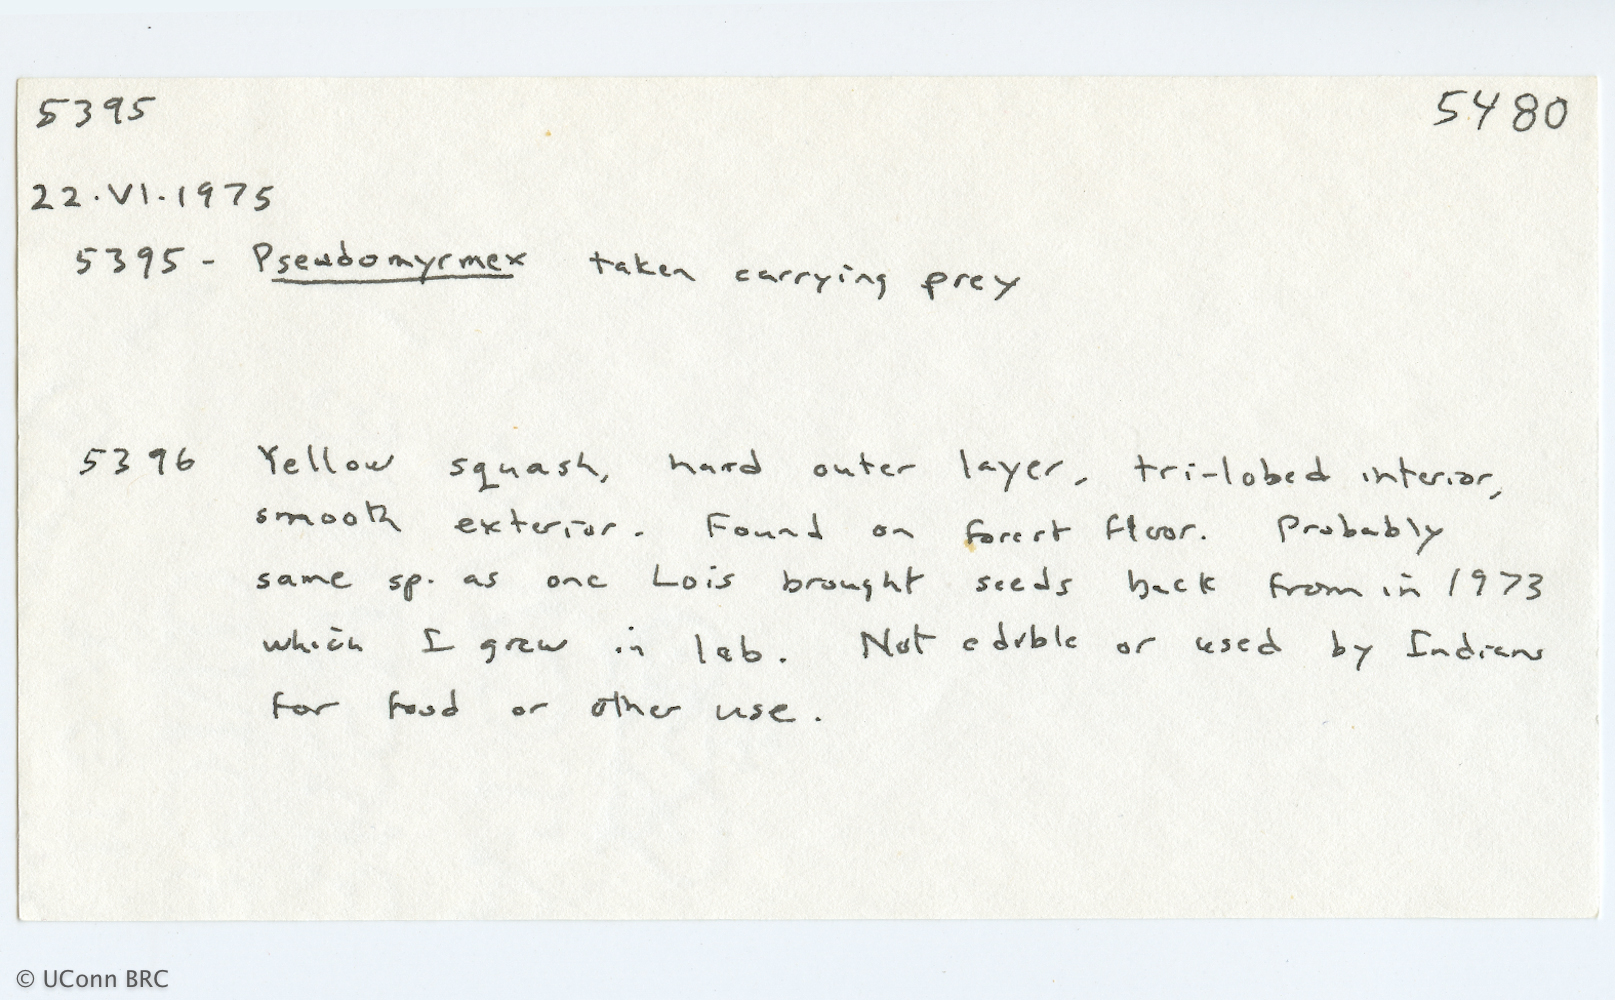 5395 5480
22.VI.1975
5395 - Pseudomyrmex taken carrying prey
5396 Yellow squash, hard outer layer, tri-lobed interior,
smooth exterior. Found on forest floor. Probably
same sp. as one Lois brought seeds back from in 1973
which I grew in lab. Not edible or used by Indians
for food or other use.
© UConn BRC